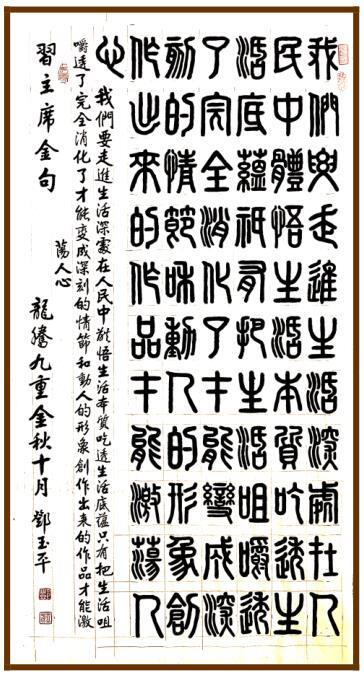 我們要走進生活深處在人
民中體悟生活本質吃透生
活底蘊祇有把生活咀嚼透
了完全消化了才能變成深
刻的情節和動人的形象創
作出來的作品才能激蕩人
心
我們要走進生活深處在人民中體悟生活本質吃透生活底蘊只有把生活咀
嚼透了完全消化了才能變成深刻的情節和動人的形象創作出來的作品才能激
蕩人心
習主席金句 龍騰九重金秋十月 鄧玉平